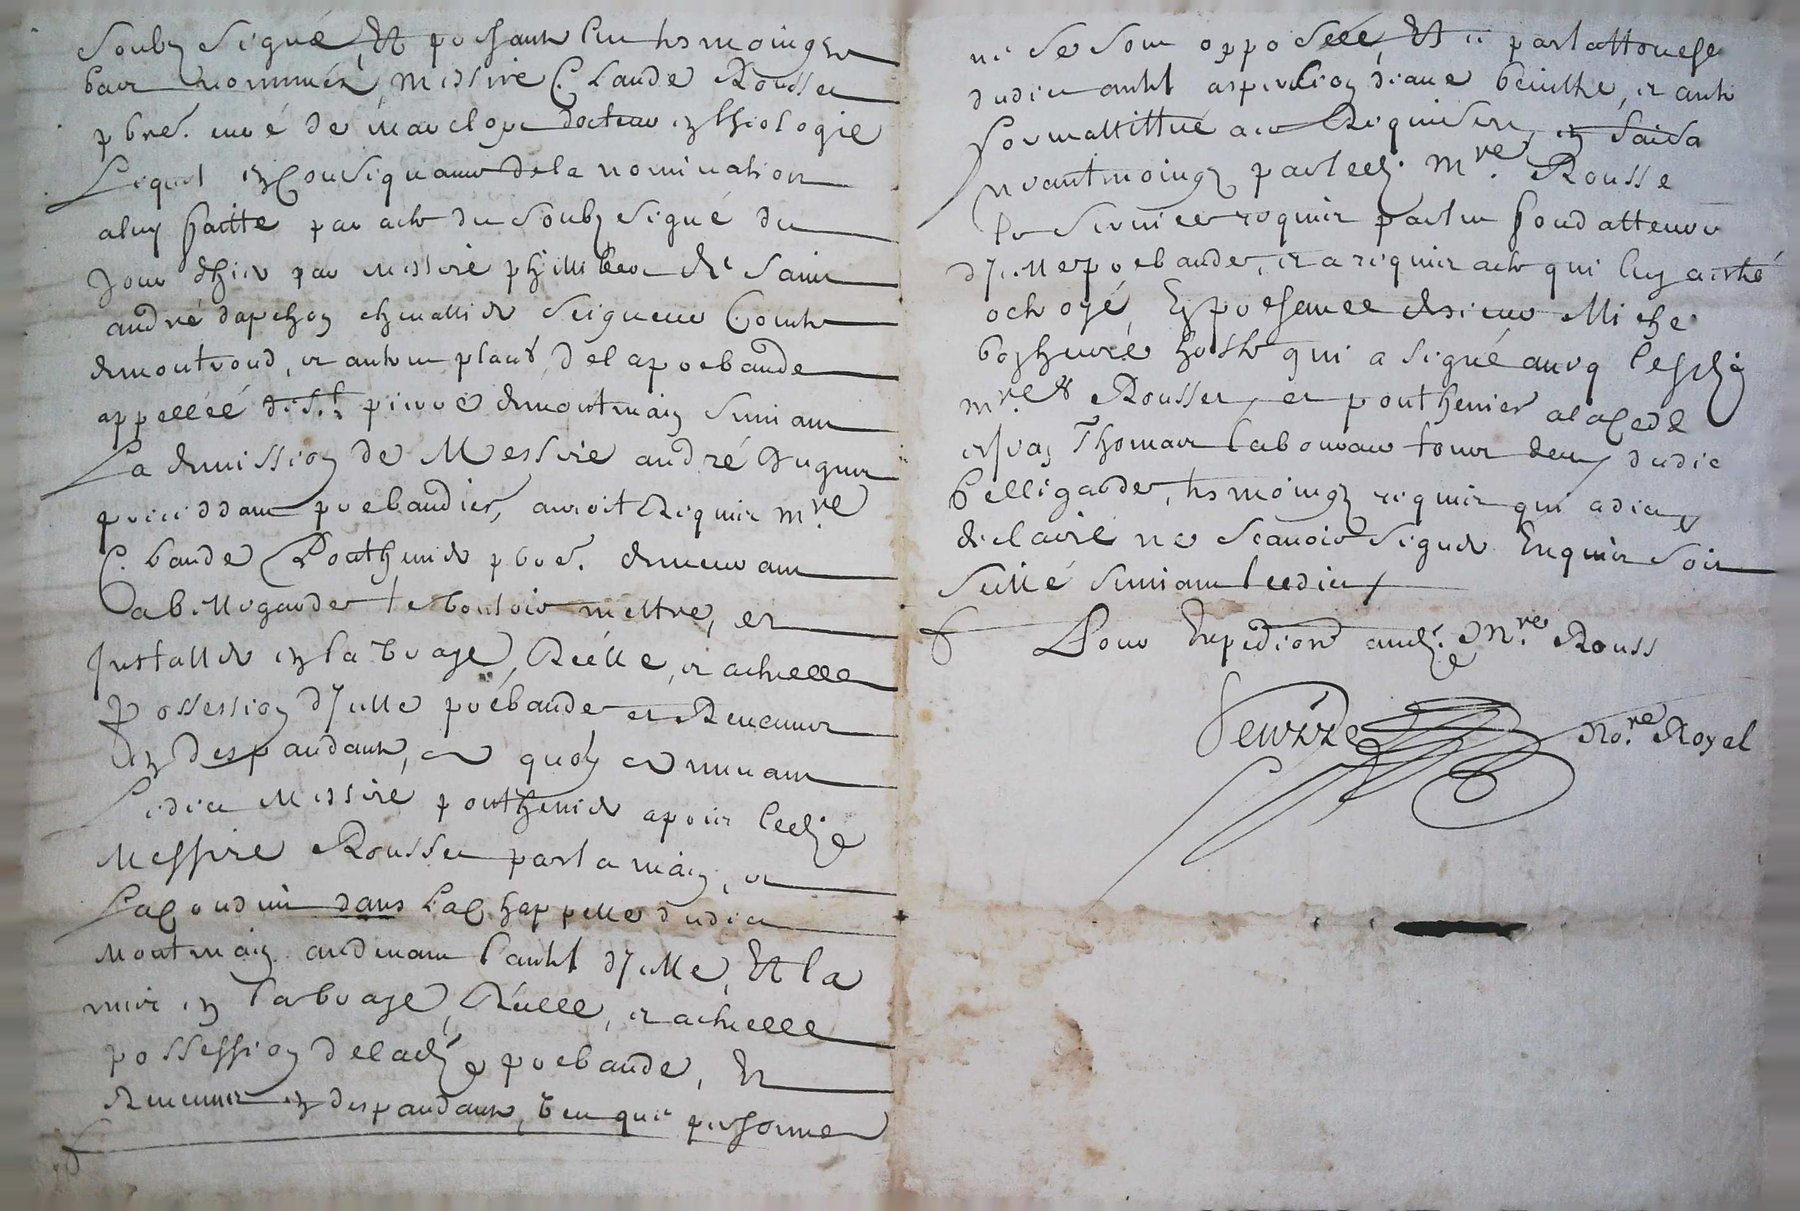 Soubz signé, Et presant les tesmoingz
bas nommés, Messire Claude Rousset
pbre. curé de Marclopt docteur en theologie
Lequel en consequance de la nomination
a luy faitte par acte du soubz signé du
Jour d'hier par Messire phillibert de Saint
andré dapchon chevallier Seigneur Comte
de montrond, et autres places, de la prebande
appellée de St. pierre de montmain suivant
La demission de Messire andré Duguet
preceddant prebandier, auroit Requis Mre
Claude Ponthenier pbre. demeurant
a bellegarde le vouloir mettre, et
Installer en la vraye, Réelle, et actuelle
Possession d'Icelle prébande et Revenus
En despandants, a quoy advenant
Ledict Messire ponthenier a pris ledit
Messire Rousset par la main, et
La conduit dans La Chappelle dudict
Montmain au devant l'autel d'Icelle, Et la
mis en la vraye, Réelle, et actuelle
possession de ladte prebande, Et
Revenus en despandants, sans que personne
ne se soit opposeé, Et ce par lattouche
dudict autel aspersion d'eaue benitte, et autre
formallitté a ce Requisere, en faisa
neantmoingz par ledt. Mre. Rousse
le service requis par les fondatteurs
d'Icelle prebande, et a requis acte qui luy a esté
octroyé, En presance de sieur Miche
hoste qui a signé avecq lesdtz
mres Rousset, et ponthenier a la Cede
et non Thomas Laboureur tous deux dudic
Bellegarde, tesmoingz requis qui a dict
declairé ne scauoir signer Enquis Soit
Sellé suivant leedict
Pour Expedition audt. Mre Rouss
No.re Royal